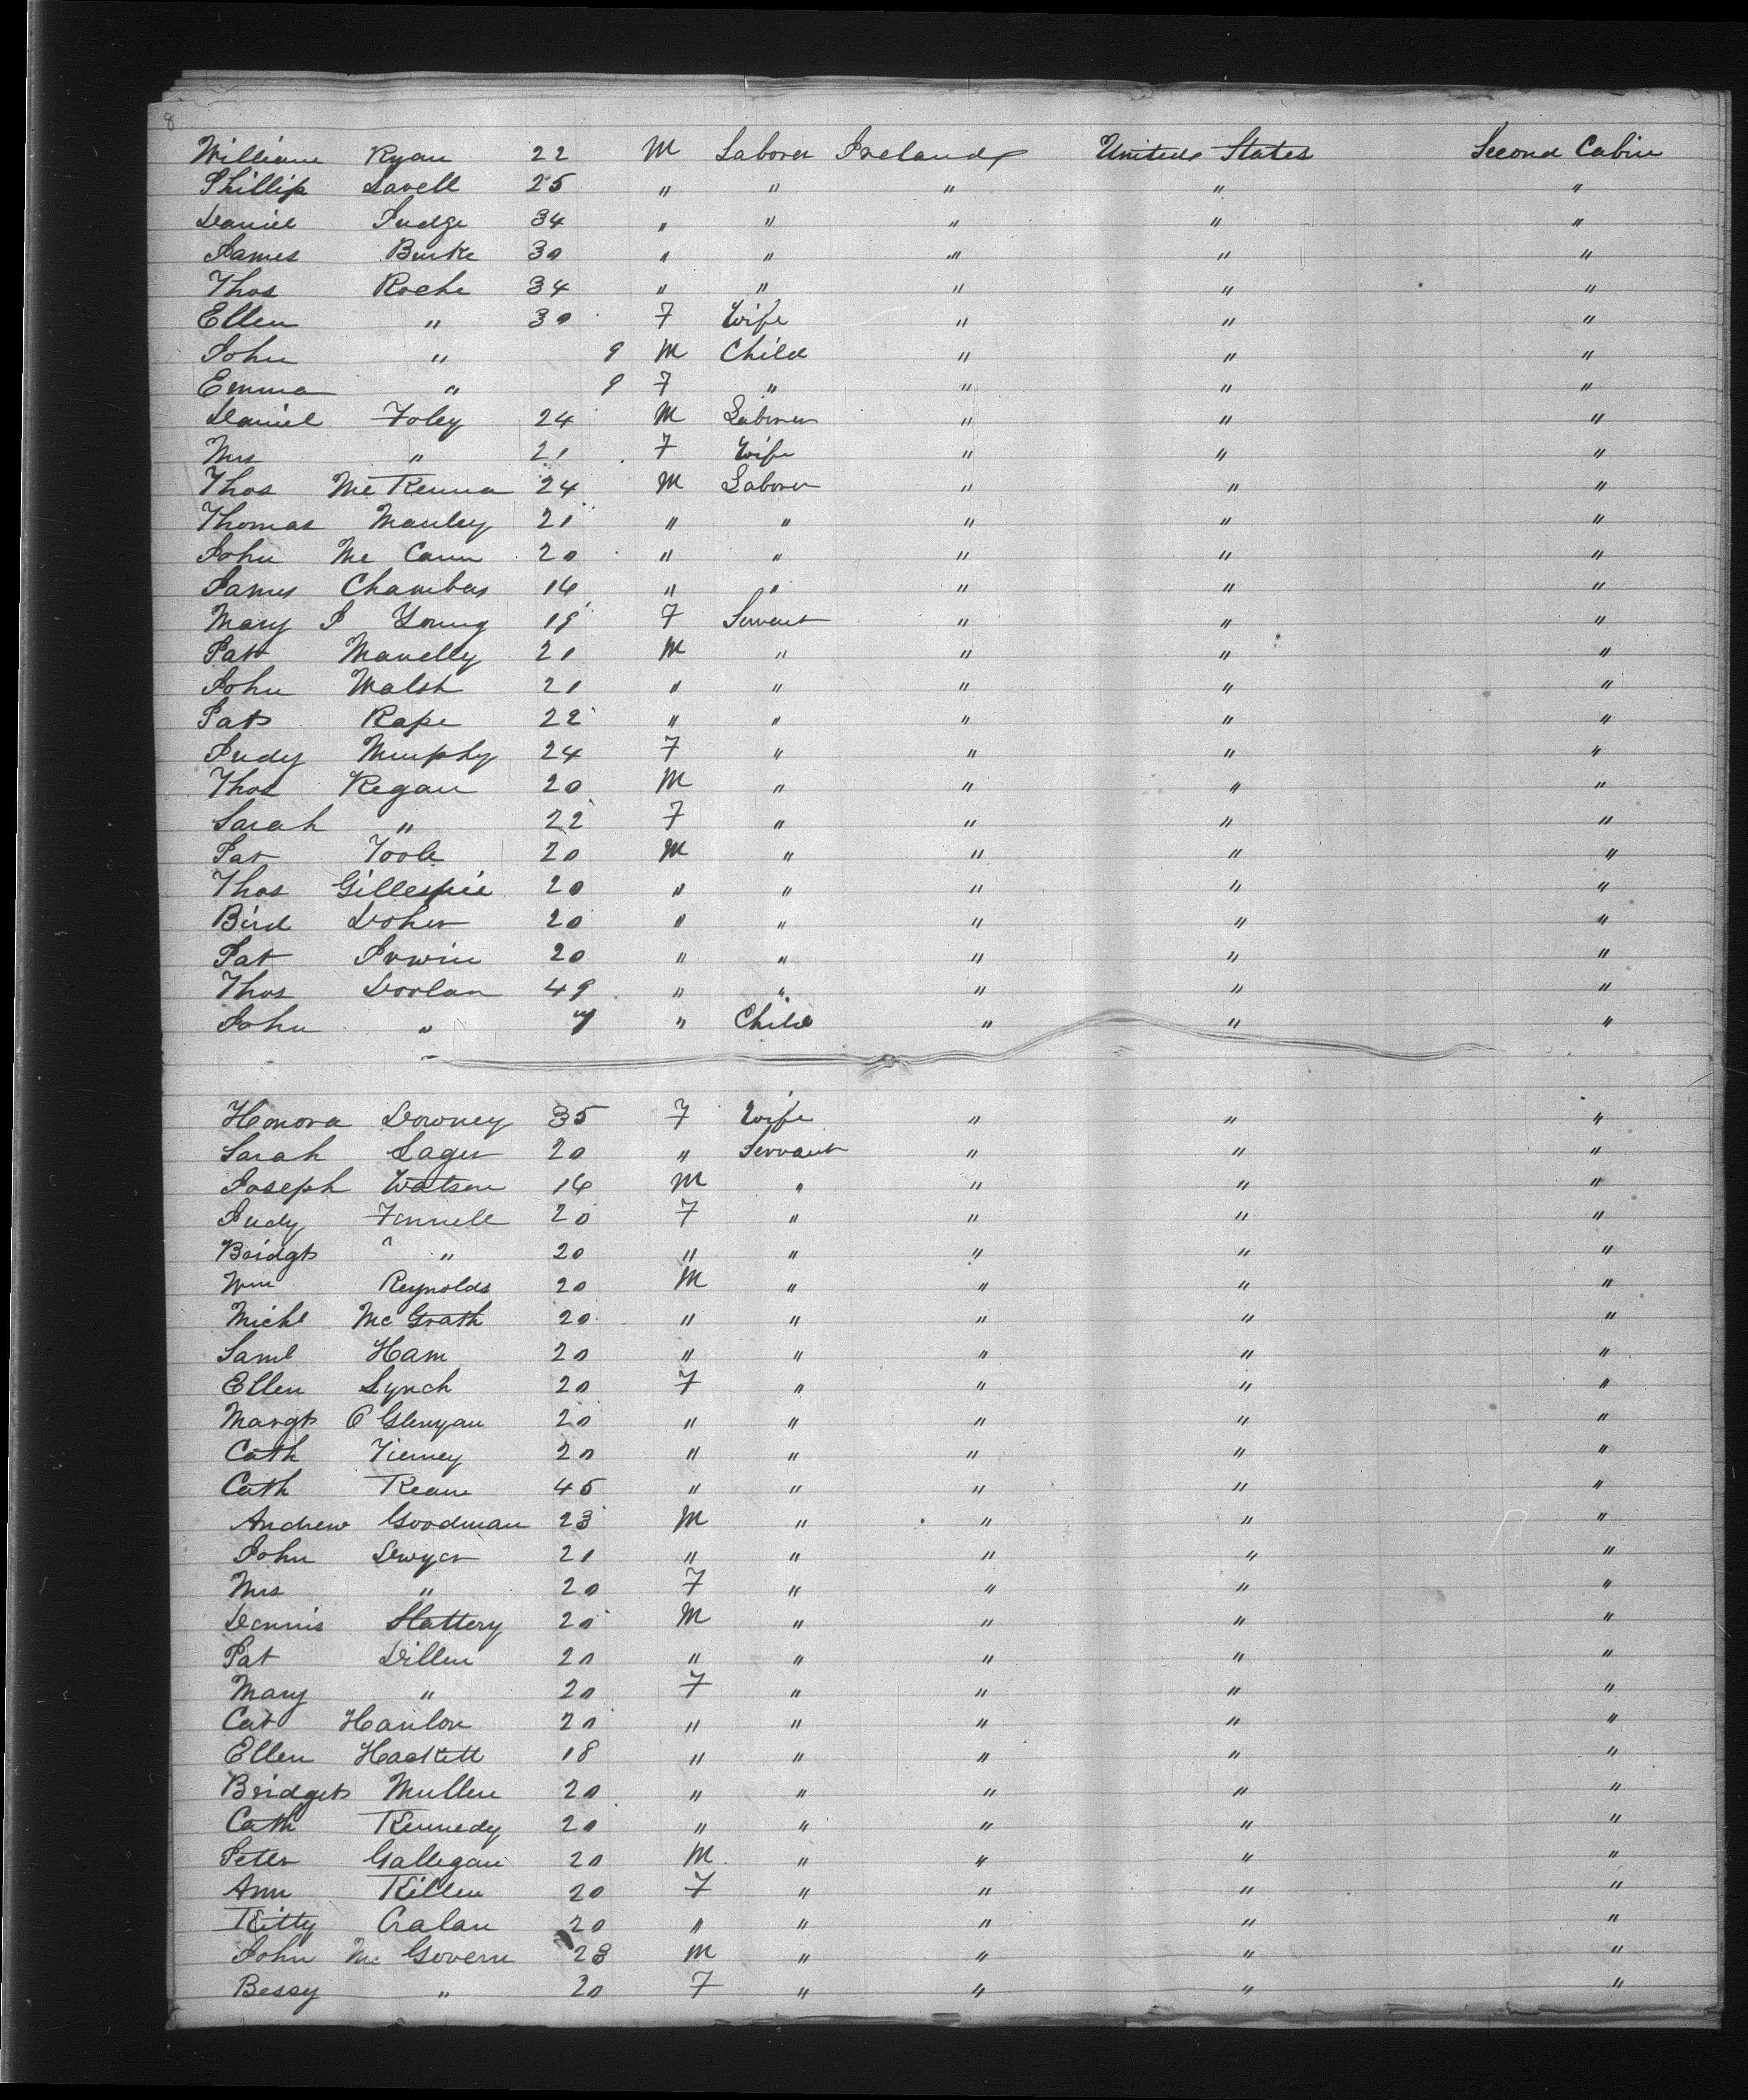 8
William Ryan 22 M Laborer Ireland United States Second Cabin
Phillip Lavell 25 " " " " "
Daniel Judge 34 " " " " "
James Burke 30 " " " " "
Thos Roche 34 " " " " "
Ellen " 30 F Wife " " "
John " 9 M Child " " "
Emma " 9 F " " " "
Daniel Foley 24 M Laborer " " "
Mrs " 21 F Wife " " "
Thos McKenna 24 M Laborer " " "
Thomas Manley 21 " " " " "
John Mc Cann 20 " " " " "
James Chambers 16 " " " " "
Mary J Young 19 F Servant " " "
Pat Manelly 21 M " " " "
John Walsh 21 " " " " "
Pat Rape 22 " " " " "
Judy Murphy 24 F " " " "
Thos Regan 20 M " " " "
Sarah " 22 F " " " "
Pat Toole 20 M " " " "
Thos Gillespie 20 " " " " "
Bird Doher 20 " " " " "
Pat Irwin 20 " " " " "
Thos Doolan 49 " " " " "
John " 7 " Child " " "
Honora Downey 35 F Wife " " "
Sarah Sager 20 " Servant " " "
Joseph Watson 16 M " " " "
Judy Fennell 20 F " " " "
Bridgt " 20 " " " " "
Wm Reynolds 20 M " " " "
Michl McGrath 20 " " " " "
Saml Ham 20 " " " " "
Ellen Lynch 20 F " " " "
Margt O Glenyan 20 " " " " "
Cath Tierney 20 " " " " "
Cath Keane 45 " " " " "
Andrew Goodman 23 M " " " "
John Dwyer 21 " " " " "
Mrs " 20 F " " " "
Dennis Slattery 20 M " " " "
Pat Dillen 20 " " " " "
Mary " 20 F " " " "
Cat Hanlon 20 " " " " "
Ellen Hackett 18 " " " " "
Bridget Mullen 20 " " " " "
Cath Kennedy 20 " " " " "
Peter Gallegan 20 M " " " "
Ann Killen 20 F " " " "
Kitty Cralan 20 " " " " "
John Mc Govern 23 M " " " "
Bessy " 20 F " " " "